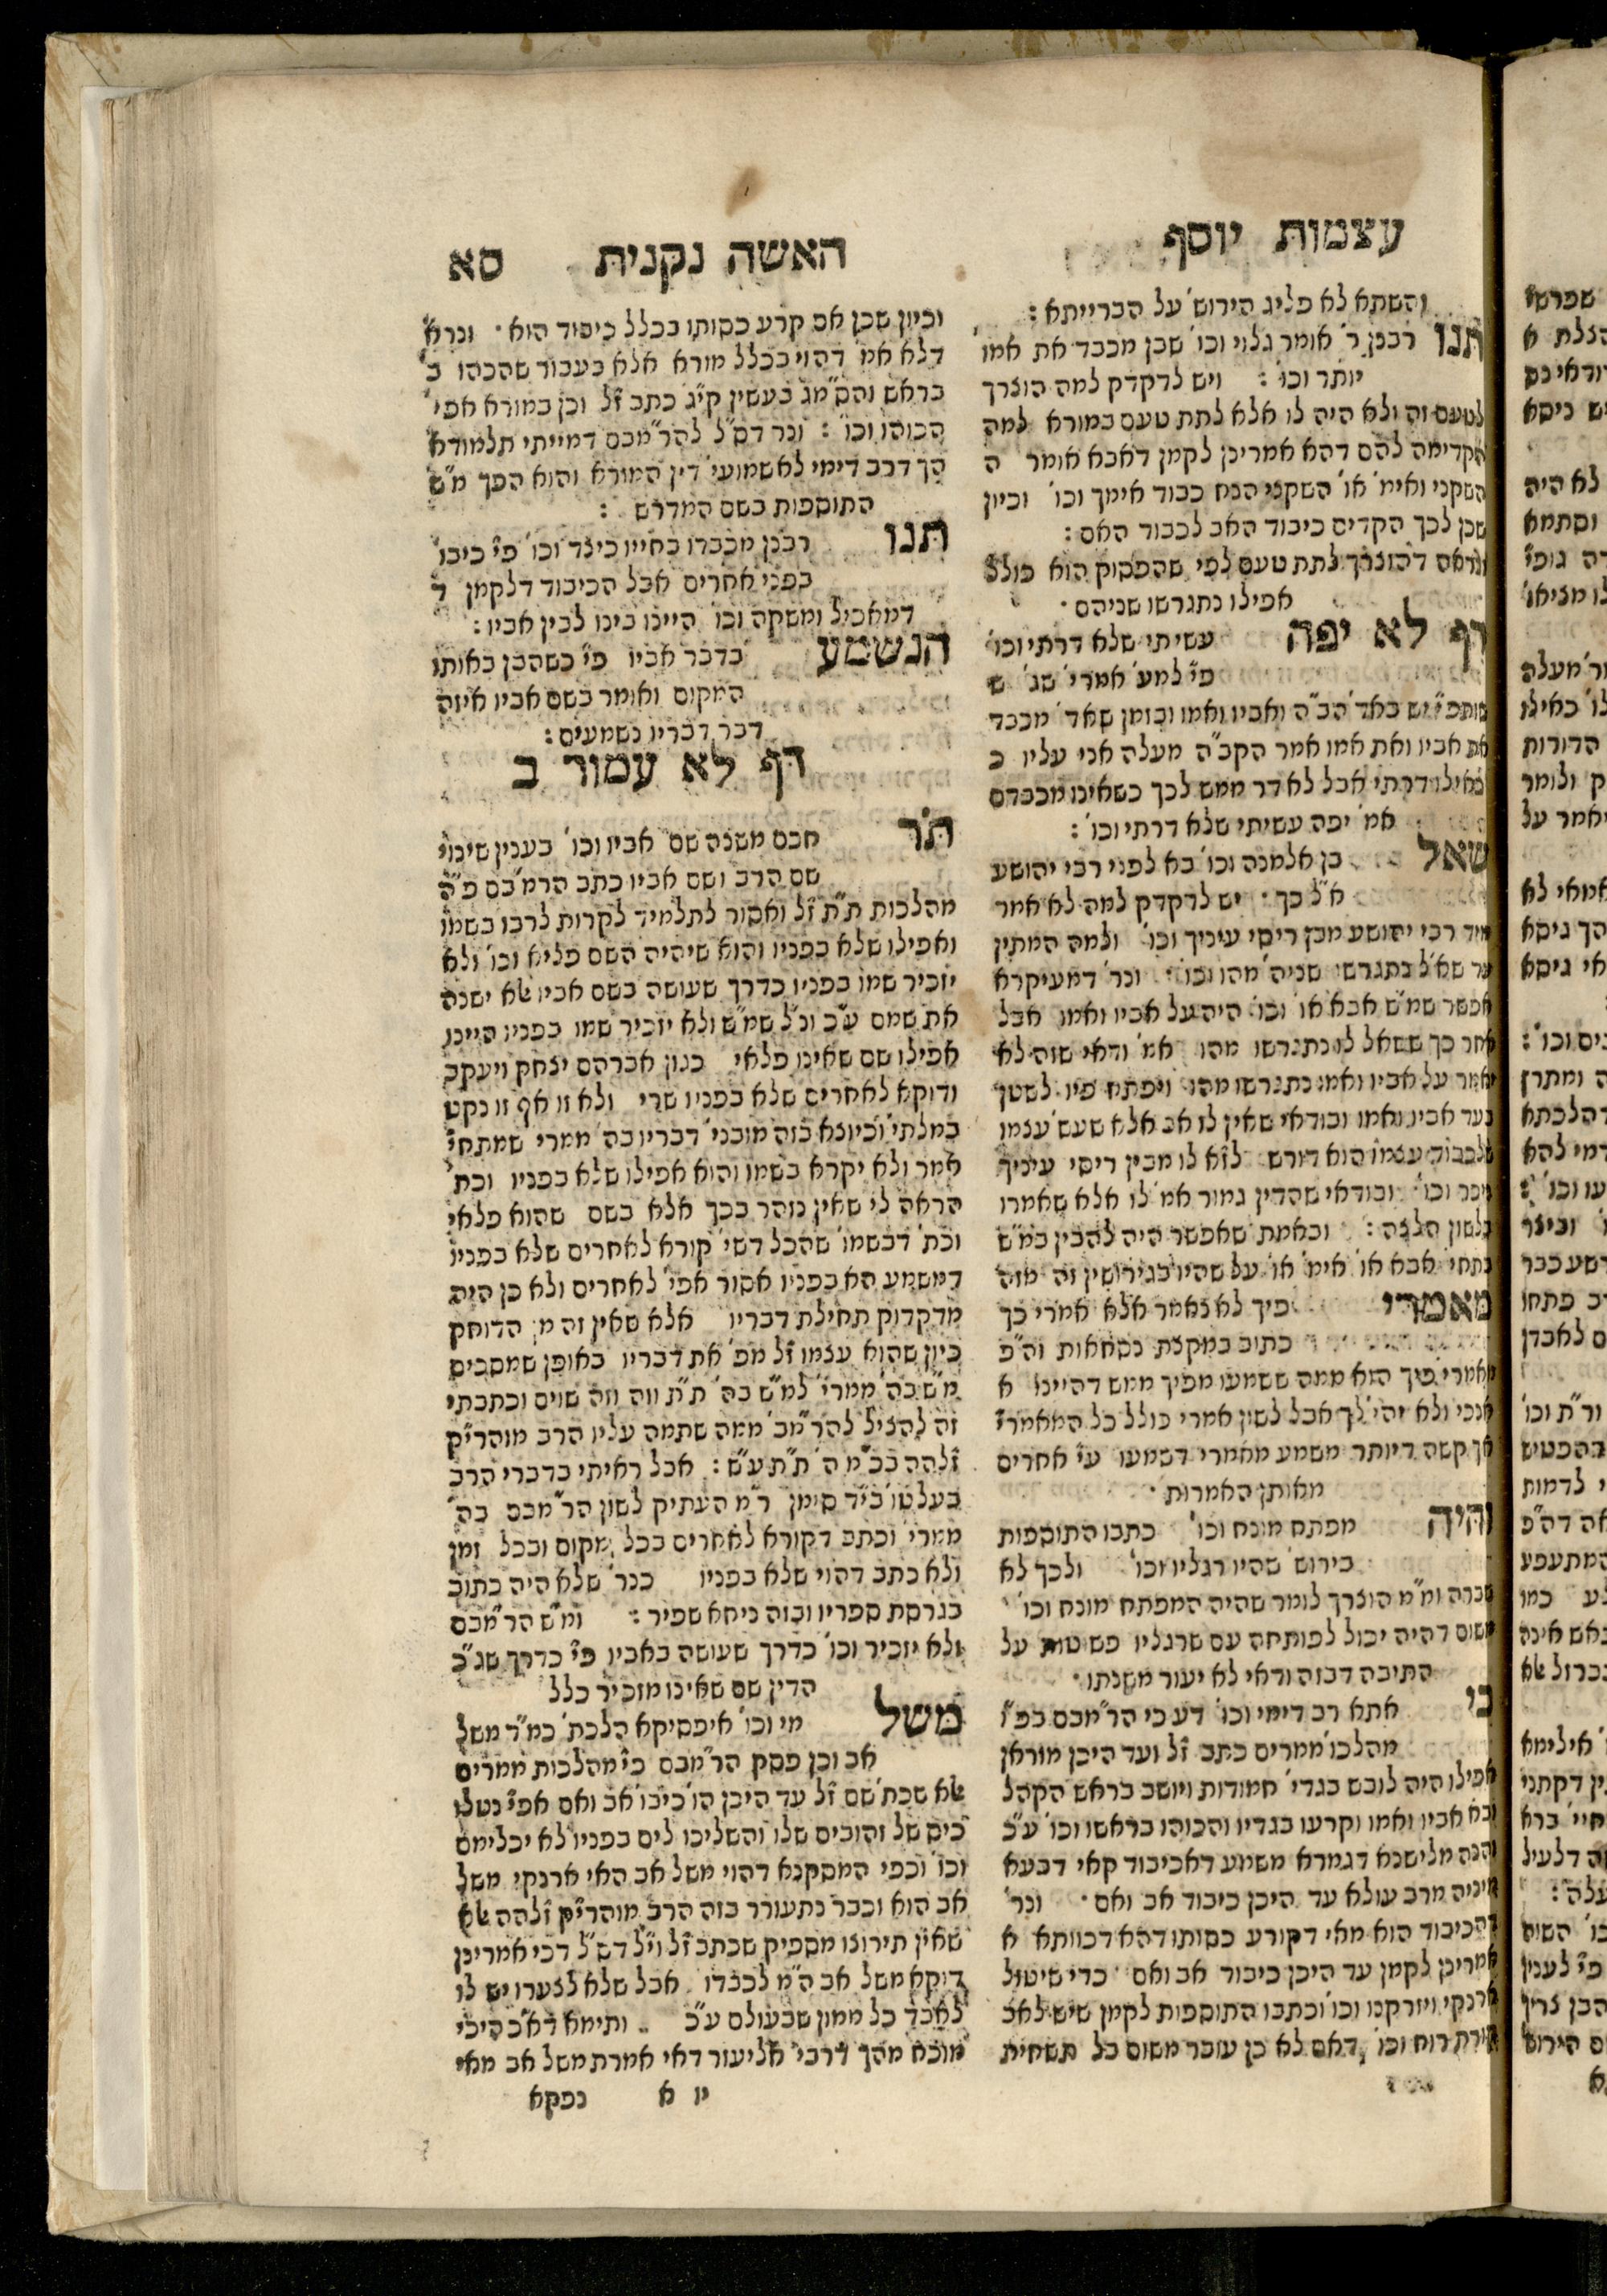 עצמות יוסף
האשה נקנית סא
והשתא לא פליג הירוש' על הברייתא :
תנו רבנן ר' אומר גלוי וכו' שבן מכבד את אמו
יותר וכו' : ויש לדקדק למה הוצרך
לטעם זה ולא היה לו אלא לתת טעם במורא למה
אקדימה להם דהא אמרינן לקמן דאבא אומר ה
השקני ואימ' או' השקני הנח כבוד אימך וכו' וכיון
שכן לכך הקדים כיבוד האב לכבוד האם :
ונראה דהוצרך לתת טעם לפי שהפסוק הוא כולל
אפילו נתגרשו שניהם ·
דף לא יפה עשיתי שלא דרתי וכו'
פי' למע' אמרי' שג' ש
שותפי' יש באד' הב"ה ואביו ואמו ובזמן שאד' מכבד
את אביו ואת אמו אמר הקב"ה מעלה אני עליו כ
כאילו דרתי אבל לא דר ממש לכך כשאינו מכבדם
אמ' יפה עשיתי שלא דרתי וכו' :
שאל בן אלמנה וכו' בא לפני רבי יהושע
א"ל כך · יש לדקדק למה לא אמר
מיד רבי יהושע מבין ריסי עיניך וכו' ולמה המתין
עד שא"ל נתגרשו שניה' מהו וכו' : ונר' דמעיקרא
אפשר שמ"ש אבא או' וכו' היה על אביו ואמו אבל
אחר כך ששאל לו נתגרשו מהו אמ' ודאי שזה לא
יאמר על אביו ואמו נתגרשו מהו ויפתח פיו לשטן
בעד אביו ואמו ובודאי שאין לו אב אלא שעש' עצמו
שלכבוד עצמו הוא דורש לז"א לו מבין ריסי עיניך
ניכר וכו' ובודאי שהדין גמור אמ' לו אלא שאמרו
בלשון הלצה : ובאמת שאפשר היה להבין במ"ש
בתחי' אבא או' אימ' או' על שהיו בגירושין זה מזה
מאמרי פיך לא נאמר אלא אמרי כך
כתוב במקצת נסחאות וה"פ
מאמרי פיך הוא ממה ששמעו מפיך ממש דהיינו א
אנכי ולא יהי' לך אבל לשון אמרי כולל כל המאמרי'
אך קשה דיותר משמע מאמרי דשמעו ע"י אחרים
מאותן האמרות ·
והיה מפתח מונח וכו' כתבו התוספות
בירוש' שהיו רגליו וכו' ולכך לא
סברה ומ"מ הוצרך לומר שהיה המפתח מונח וכו'
משום דהיה יכול לפותחה עם שרגליו פשוטות על
התיבה דבזה ודאי לא יעור משנתו ·
כי אתא רב דימי וכו' דע כי הר"מבם בפ"ו
מהלכו' ממרים כתב ז"ל ועד היכן מוראן
אפילו היה לובש בגדי' חמודות ויושב בראש הקהל
ובא אביו ואמו וקרעו בגדיו והכוהו בראשו וכו' ע"כ
והנה מלישנא דגמרא משמע דאכיבוד קאי דבעא
מיניה מרב עולא עד היכן כיבוד אב ואם · ונר'
דהכיבוד הוא מאי דקורע כסותו דהא דכוותא א
אמרינן לקמן עד היכן כיבוד אב ואם כדי שיטול
ארנקי ויזרקנו וכו' וכתבו התוספות לקמן שיש לאב
קורת רוח וכו' , דאם לא כן עובר משום בל תשחית
וכיון שכן אם קרע כסותו בכלל כיבוד הוא · ונרא'
דלא אמ' דהוי בכלל מורא אלא בעבור שהכהו ב'
בראש והס"מג בעשין קי"ג כתב ז"ל וכן במורא אפי'
הכוהו וכו' : ונר' דס"ל להר"מבם דמייתי תלמודא
הך דרב דימי לאשמועי' דין המורא והוא הפך מ"ש
התוספות בשם המדרש :
תנו רבנן מכבדו בחייו כיצד וכו' פי' כיבו'
בפני אחרים אבל הכיבוד דלקמן ד
דמאכיל ומשקה וכו' היינו בינו לבין אביו :
הנשמע בדבר אביו פי' כשהבן באותו
המקום ואומר בשם אביו איזה
דבר דבריו נשמעים :
דף לא עמוד ב
ת"ר חכם משנה שם אביו וכו' בענין שינוי
שם הרב ושם אביו כתב הרמ"בם פ"ה
מהלכות ת"ת ז"ל ואסור לתלמיד לקרות לרבו בשמו
ואפילו שלא בפניו והוא שיהיה השם פליא וכו' ולא
יזכיר שמו בפניו כדרך שעושה בשם אביו אלא ישנה
את שמם ע"כ ונ"ל שמ"ש ולא יזכיר שמו בפניו היינו
אפילו שם שאינו פלאי כגון אברהם יצחק ויעקב
ודוקא לאחרים שלא בפניו שרי ולא זו אף זו נקט
במלתי' וכיוצא בזה מובני' דבריו בה' ממרי שמתחי'
אמר ולא יקרא בשמו והוא אפילו שלא בפניו וכת'
הראה לי שאין נזהר בכך אלא בשם שהוא פלאי
וכת' דבשמו' שהכל דשי' קורא לאחרים שלא בפניו
דמשמע הא בפניו אסור אפי' לאחרים ולא כן היה
מדקדוק תחילת דבריו אלא שאין זה מן הדוחק
כיון שהוא עצמו ז"ל מפ' את דבריו באופן שמסכים
מ"ש בה' ממרי' למ"ש בה' ת"ת וזה וזה שוים וכתבתי
זה להציל להר"מב' ממה שתמה עליו הרב מוהרי"ק
זלהה בכ"מ ה' ת"ת ע"ש : אבל ראיתי בדברי הרב
בעל טו' בי"ד סימן ר"מ העתיק לשון הר"מבם בה'
ממרי' וכתב דקורא לאחרים בכל מקום ובכל זמן
ולא כתב דהוי שלא בפניו כנר' שלא היה כתוב
בגרסת ספריו ובזה ניחא שפיר : ומ"ש הר"מבם
ולא יזכיר וכו' כדרך שעושה באביו פי' כדרך שג"כ
הדין שם שאינו מזכיר כלל
משל מי וכו' איפסיקא הלכת' כמ"ד משל
אב וכן פסק הר"מבם פ"ו מהלכות ממרים
אלא שכת' שם ז"ל עד היכן הו' כיבו' אב ואם אפי' נטלו
כיס של זהובים שלו והשליכו לים בפניו לא יכלימם
וכו' וכפי המסקנא דהוי משל אב האי ארנקי משל
אב הוא וכבר נתעורר בזה הרב מוהרי"ק זלהה אלא
שאין תירוצו מספיק שכתב ז"ל וי"ל דס"ל דכי אמרינן
דוקא משל אב ה"מ לכבדו אבל שלא לצערו יש לו
לאבד כל ממון שבעולם ע"כ ותימא דא"כ היכי
מוכח מהך דרבי אליעזר דאי אמרת משל אב מאי
יו א נפקא